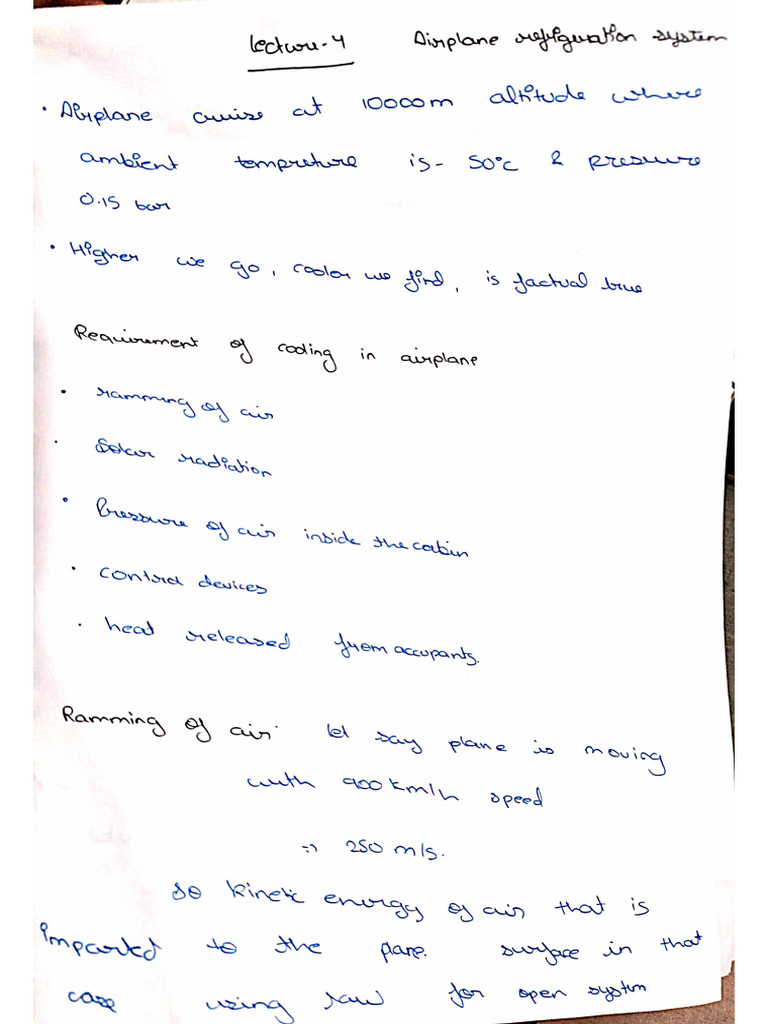 Lecture-4 Airplane refiguration system
• Airplane cruise at 10000m altitude where
ambient tempreture is - 50°C & pressure
0.15 bar
• Higher we go, cooler we find, is factual true
Requirement of cooling in airplane
• ramming of air
• Solar radiation
• Pressure of air inside the cabin
• control devices
• heat released from accupants.
Ramming of air let say plane is moving
with 900 km/h speed
=> 250 m/s.
so kinetic energy of air that is
imparted to the plane. surface in that
case using law for open system